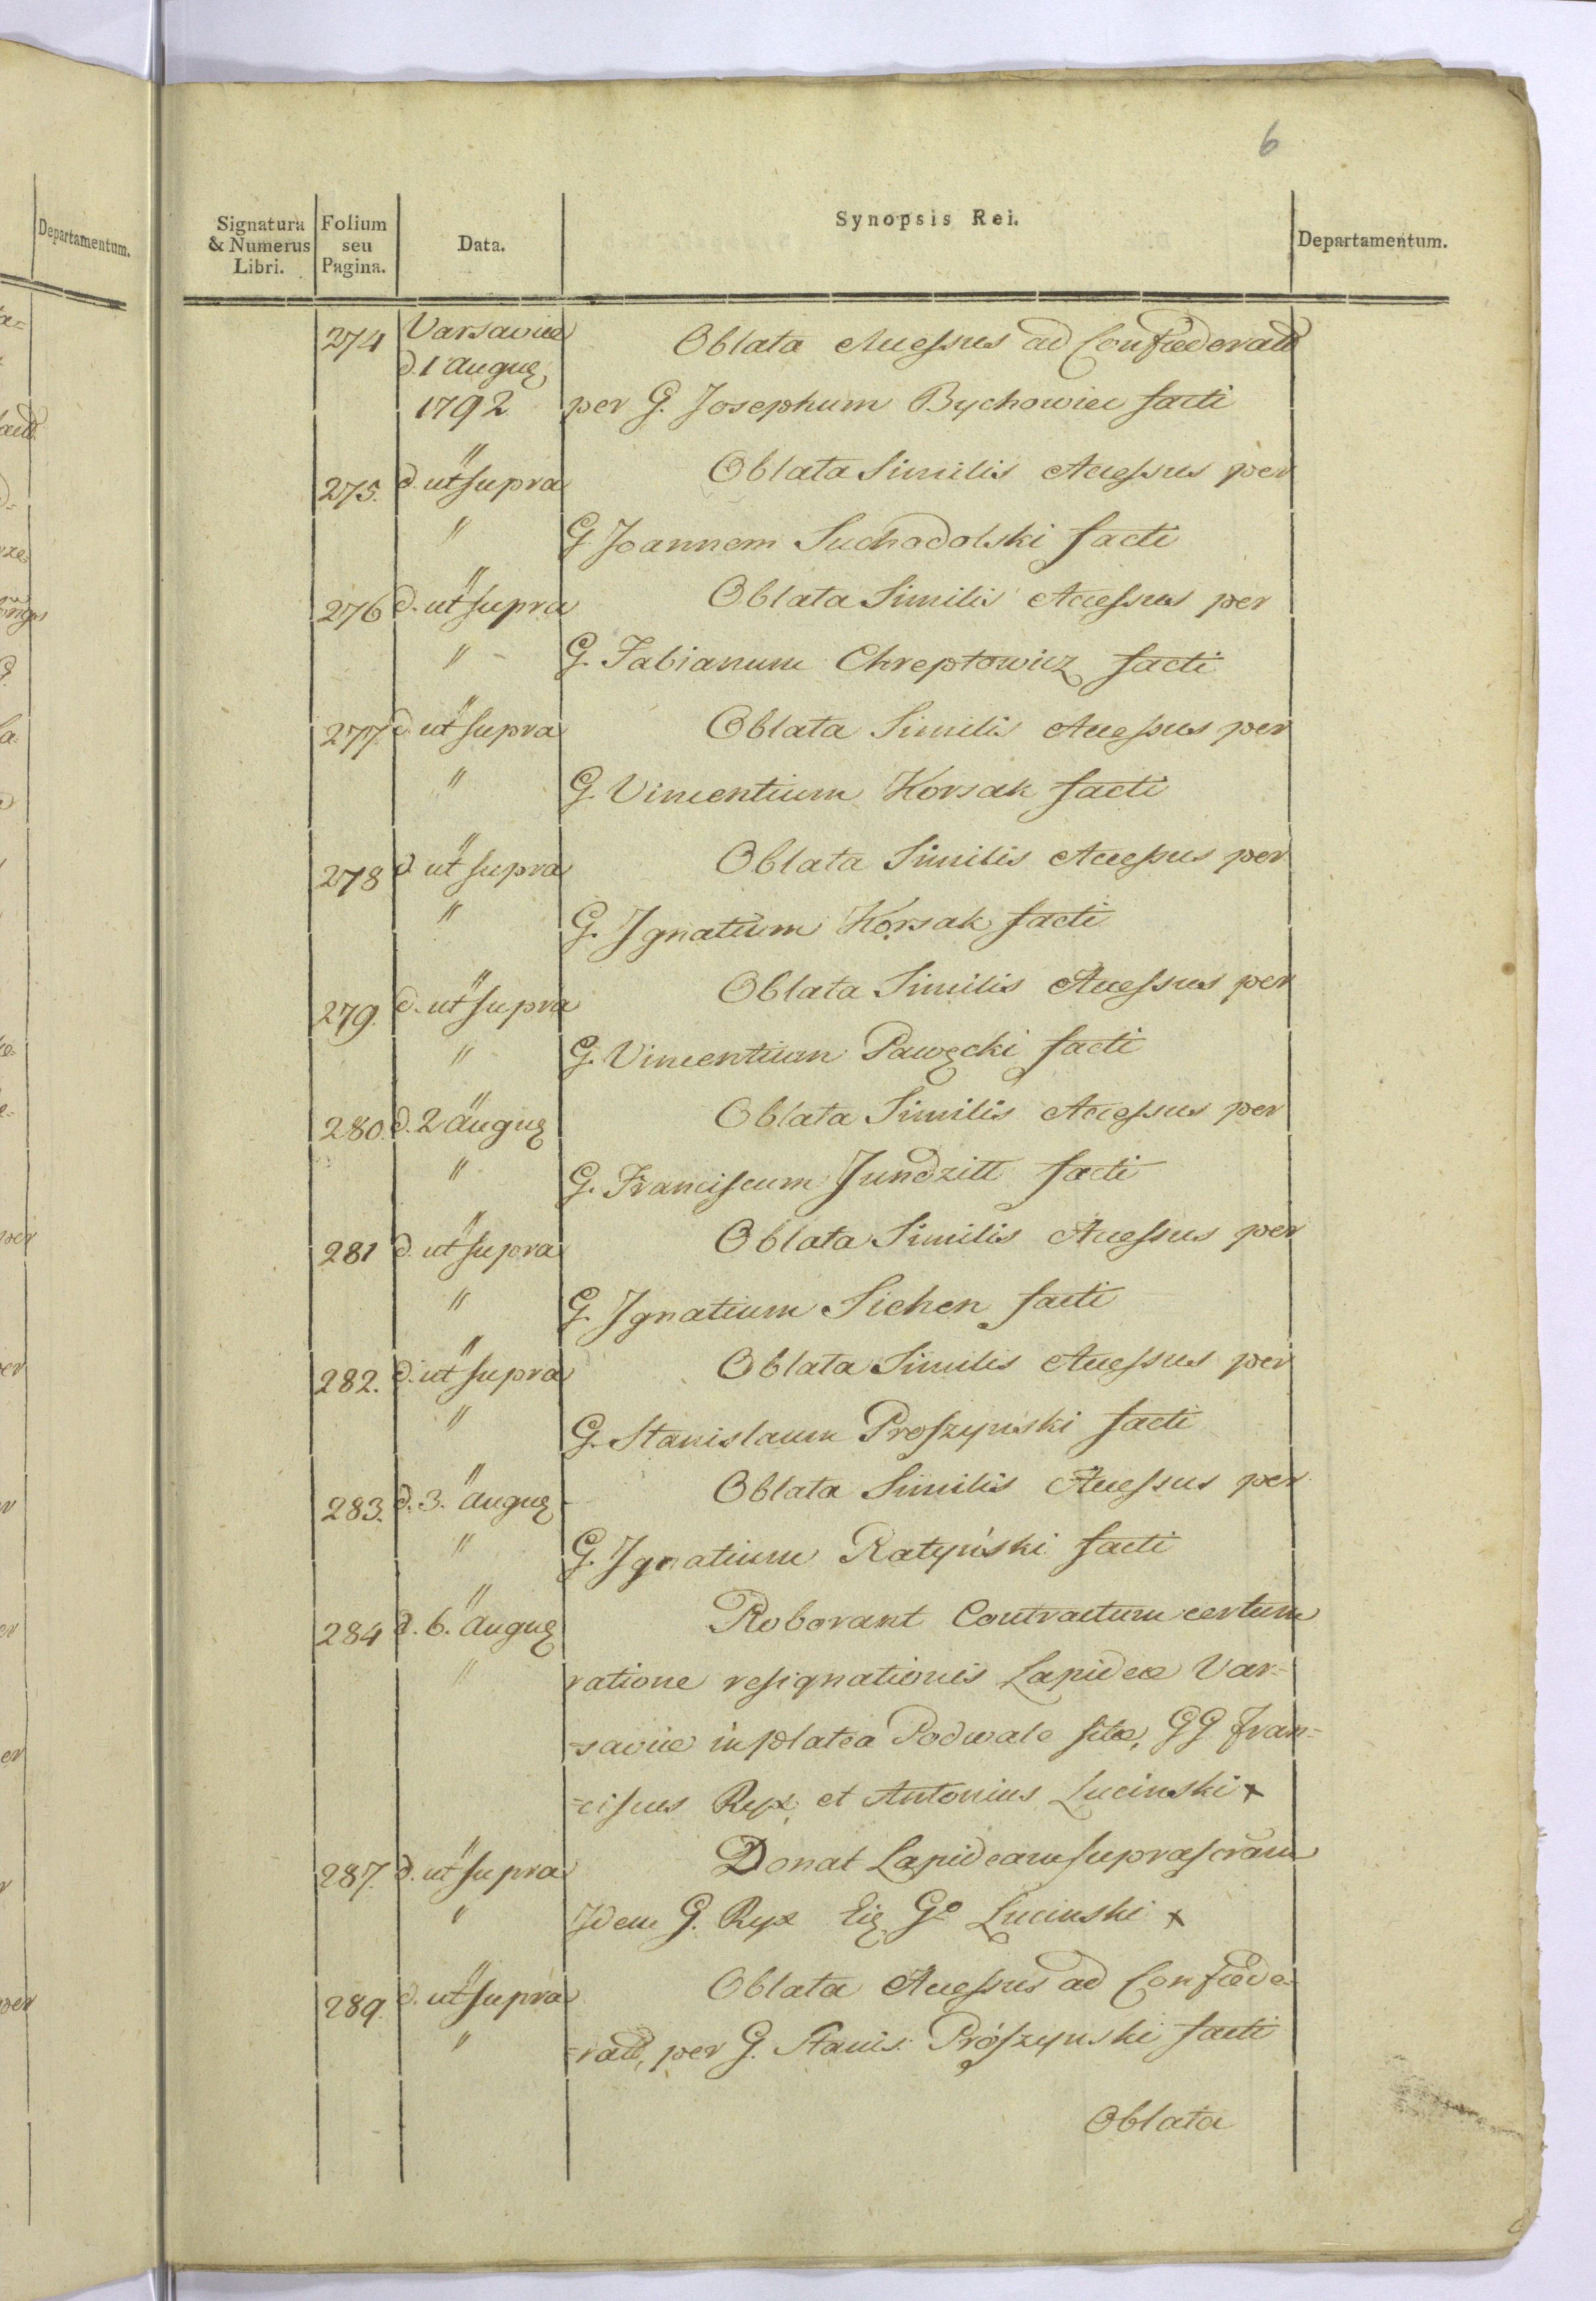 6
Signatura & Numerus Libri. Folium seu Pagina. Data. Synopsis Rei. Departamentum.
274 Varsaviæ Oblata Accessus ad Confœderatt
d. 1 Augus
1792 per G. Josephum Bychowiec facti
275. d. ut supra Oblata Similis Accessus per
" G. Joannem Suchodolski facti
276 d. ut supra Oblata Similis Accessus per
" G. Fabianum Chreptowicz facti
277. d. ut supra Oblata Similis Accessus per
" G. Vincentium Korsak facti
278 d. ut supra Oblata Similis Accessus per
" G. Ignatium Korsak facti
279. d. ut supra Oblata Similis Accessus per
" G. Vincentium Pawęcki facti
280. d. 2 Augus Oblata Similis Accessus per
" G. Franciscum Jundziłł facti
281 d. ut supra Oblata Similis Accessus per
" G. Ignatium Sichen facti
282. d. ut supra Oblata Similis Accessus per
" G. Stanislaum Proszyński facti
283. d. 3. Augus Oblata Similis Accessus per
" G. Ignatium Ratyński facti
284 d. 6. Augus Roborant Contractum certum
" ratione resignationis Lapideæ Var=
=saviæ in platea Podwale sitæ, GG Fran=
=ciscus Ryx et Antonius Lucinski x
287. d. ut supra Donat Lapideam suprascram
" Idem G. Ryx Go Lucinski x
289. d. ut supra Oblata Accessus ad Confœde=
" =ratt, per G. Stanis: Prószynski facti
Oblata
Departamentum.